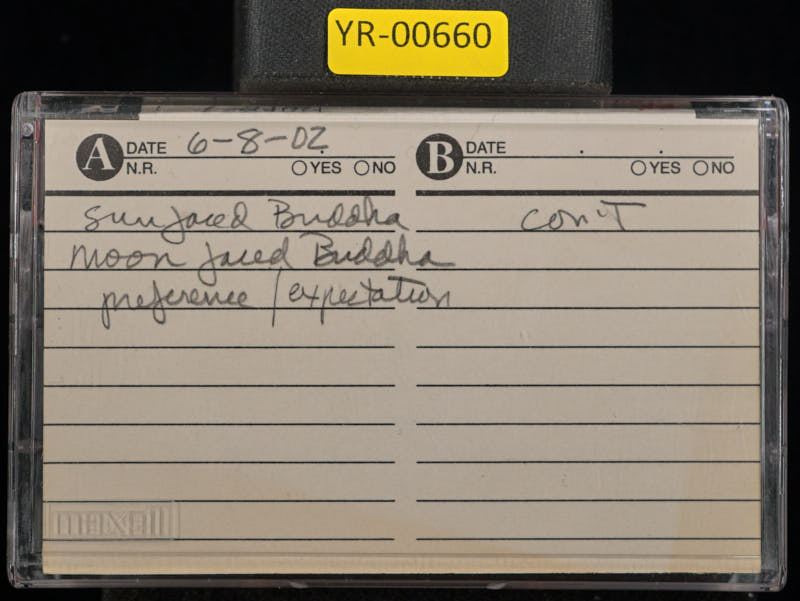 YR-00660
A DATE 6-8-02
N.R. YES NO
B DATE
N.R. YES NO
Sun faced Buddha
moon faced Buddha
preference / expectation
con't
maxell